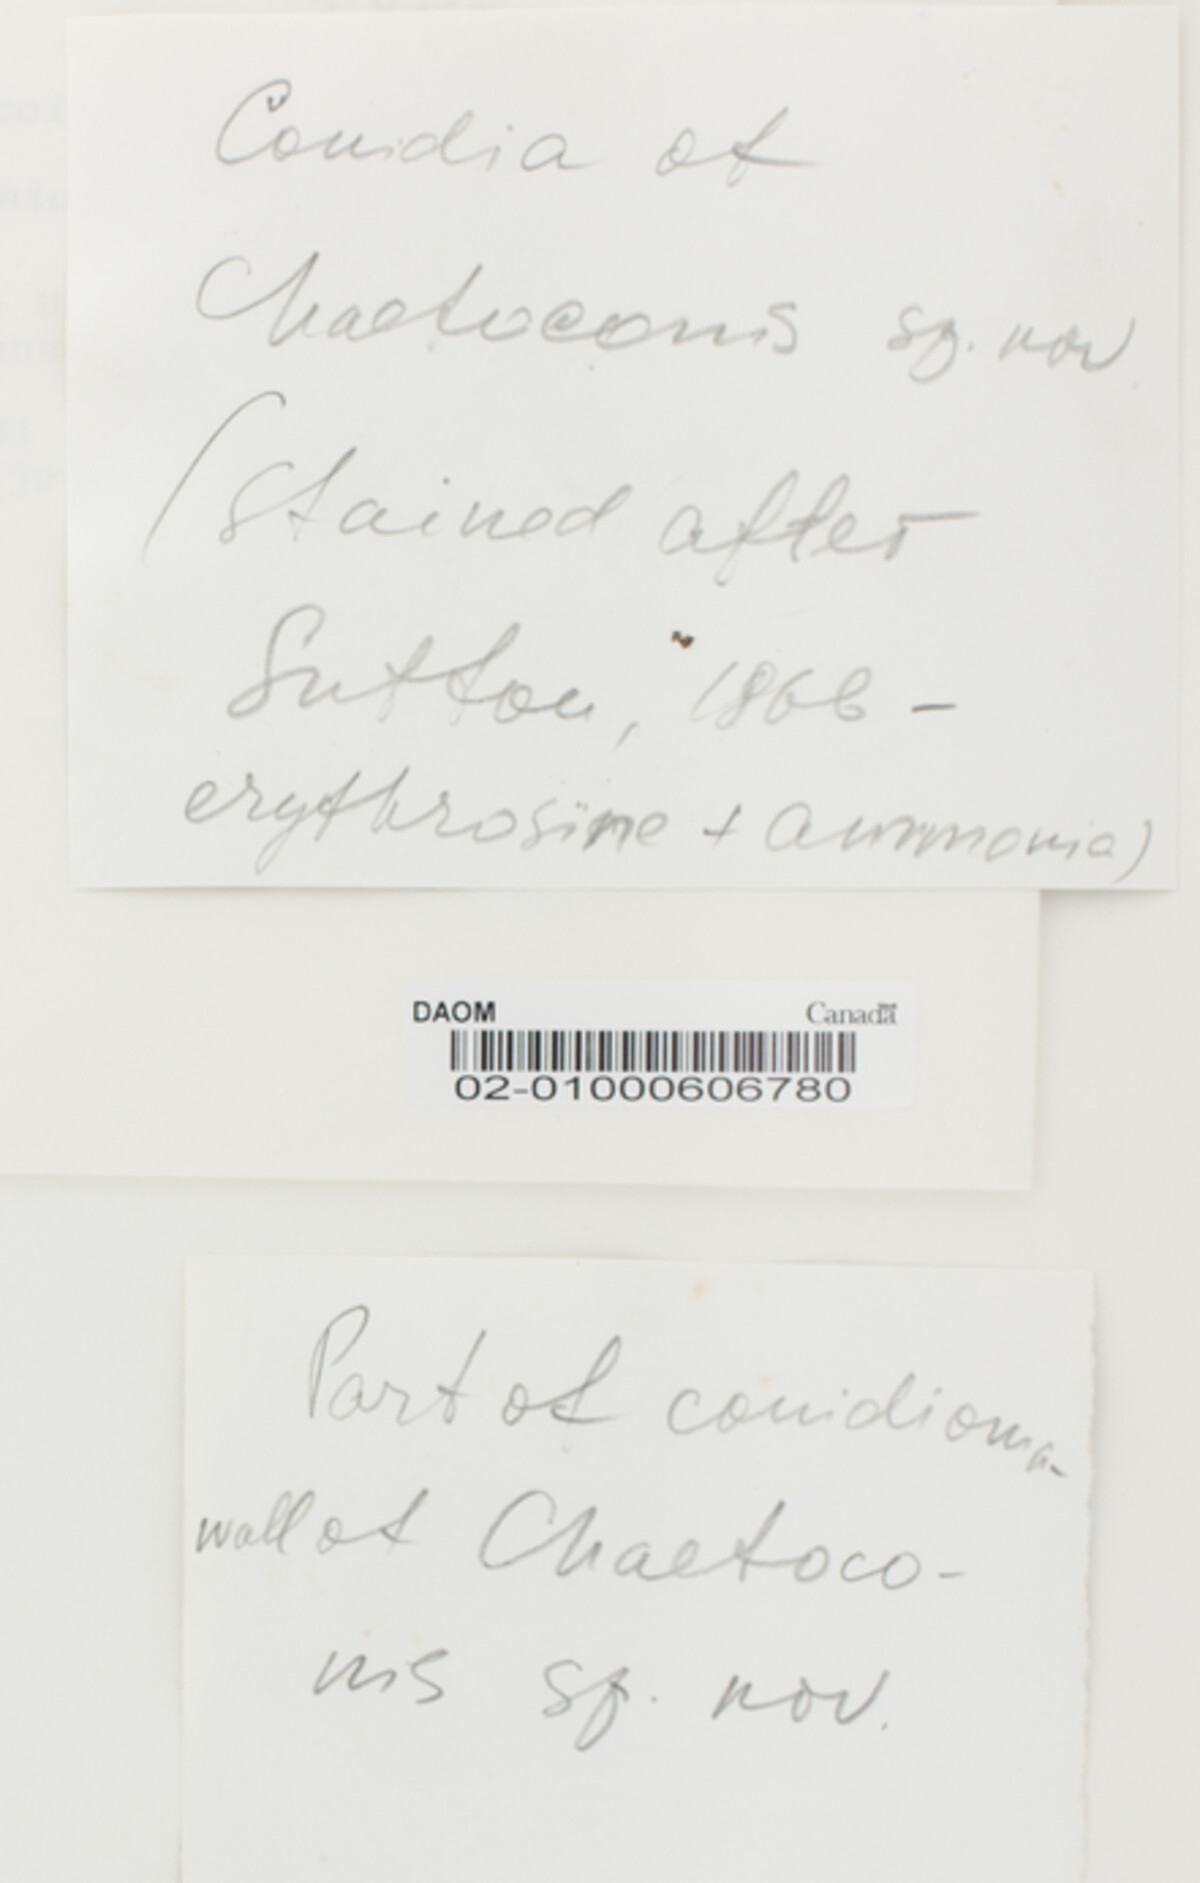 Conidia of
Chaetoconis sp. nov
(Stained after
Sutton, 1968 -
erythrosine + ammonia)
DAOM
Canada
02-01000606780
Part of conidioma-
wall of Chaetoco-
nis sp. nov.